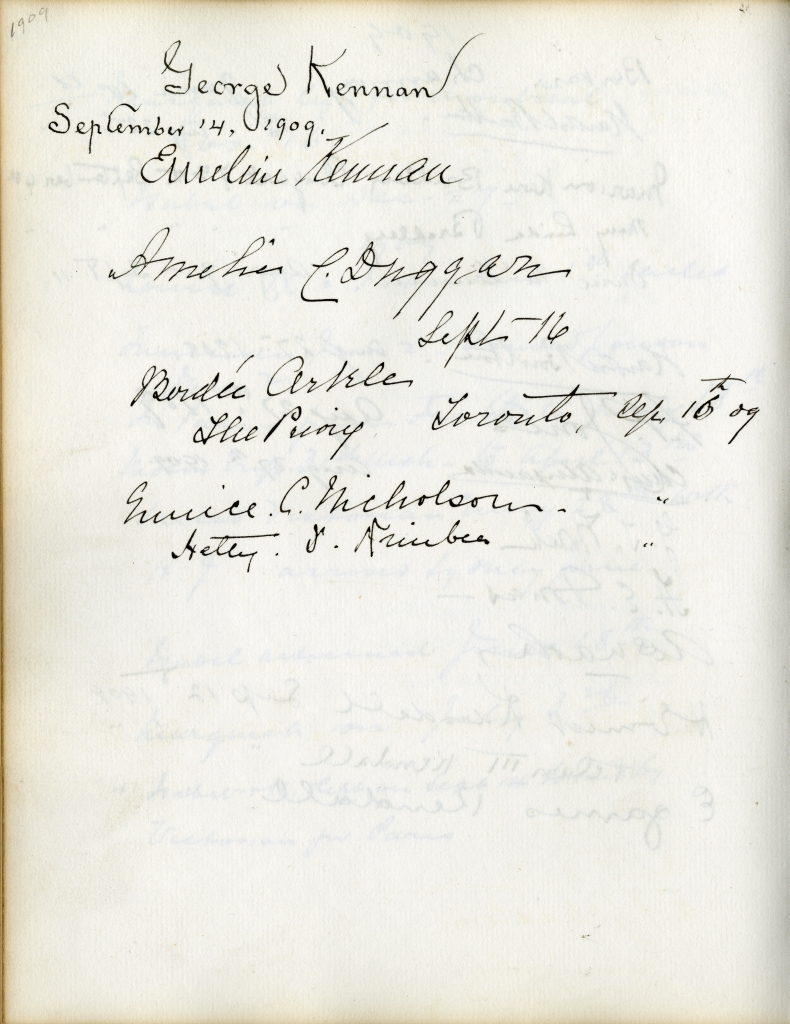 1909
George Kennan
September 14, 1909.
Emeline Kennan
Amelie C. Duggan
Sept 16
The Priory Toronto, Sep. 16th 09
Eunice. C. Nicholson. "
Hetty. D. "